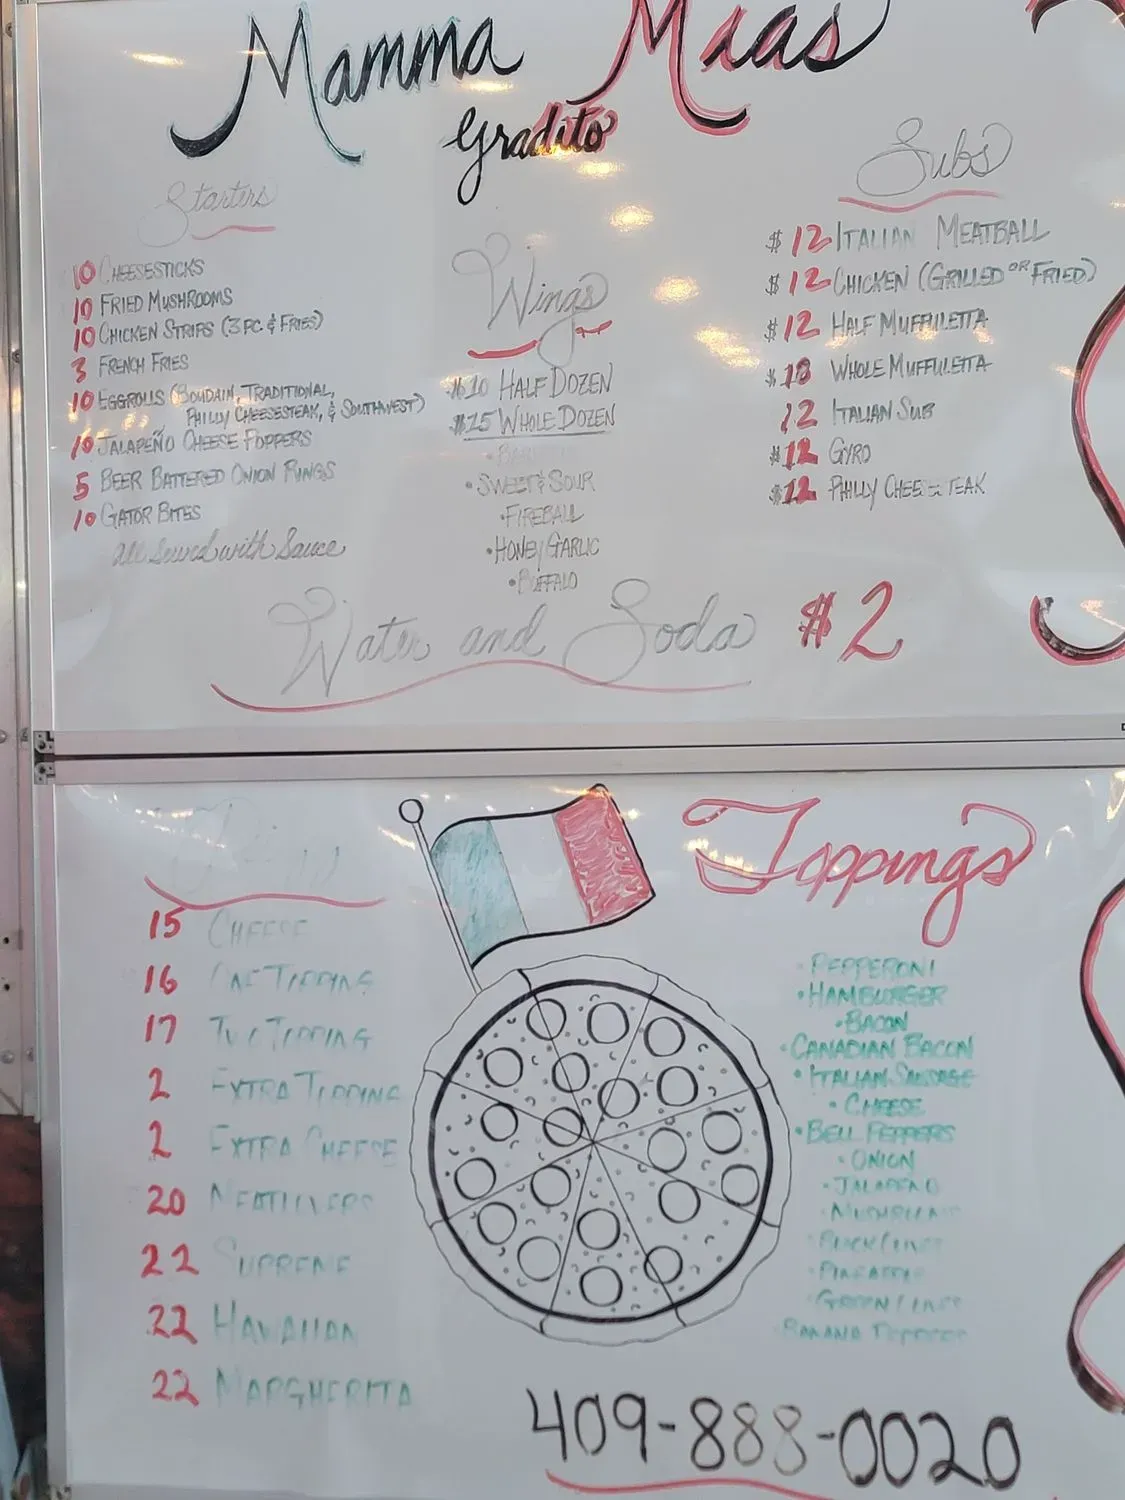 Mamma Maas
Gradito
Starters
10 CHEESESTICKS
10 FRIED MUSHROOMS
10 CHICKEN STRIPS (3 PC & FRIES)
3 FRENCH FRIES
10 EGGROLLS (BOUDAIN, TRADITIONAL,
PHILLY CHEESESTEAK, & SOUTHWEST)
10 JALAPEÑO CHEESE POPPERS
5 BEER BATTERED ONION RINGS
10 GATOR BITES
All Served with Sauce
Wings
$10 HALF DOZEN
$15 WHOLE DOZEN
• SWEET & SOUR
• FIREBALL
• HONEY GARLIC
• BUFFALO
Subs
$12 ITALIAN MEATBALL
$12 CHICKEN (GRILLED OR FRIED)
$12 HALF MUFFULETTA
$18 WHOLE MUFFULETTA
12 ITALIAN SUB
$12 GYRO
$12 PHILLY CHEESESTEAK
Water and Soda $2
15 CHEESE
16 ONE TOPPING
17 TWO TOPPING
2 EXTRA TOPPING
2 EXTRA CHEESE
20 MEATLOVERS
22 SUPREME
22 HAWAIIAN
22 MARGHERITA
Toppings
• PEPPERONI
• HAMBURGER
• BACON
• CANADIAN BACON
• ITALIAN SAUSAGE
• CHEESE
• BELL PEPPERS
• ONION
• JALAPENO
• MUSHROOMS
• BLACK OLIVES
• PINEAPPLE
• GREEN OLIVES
BANANA PEPPERS
409-888-0020